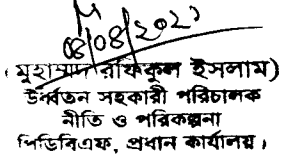 ০৪/০৪/২০২১
(মুহাম্মদ রফিকুল ইসলাম)
উর্ধ্বতন সহকারী পরিচালক
নীতি ও পরিকল্পনা
পিডিবিএফ, প্রধান কার্যালয়।